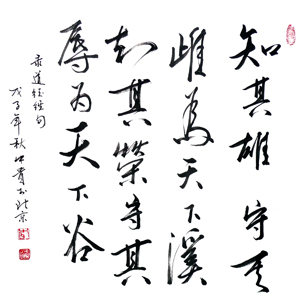 知其雄守其
雌為天下溪
知其榮守其
辱为天下谷
录道德经句
戊子年秋 北京